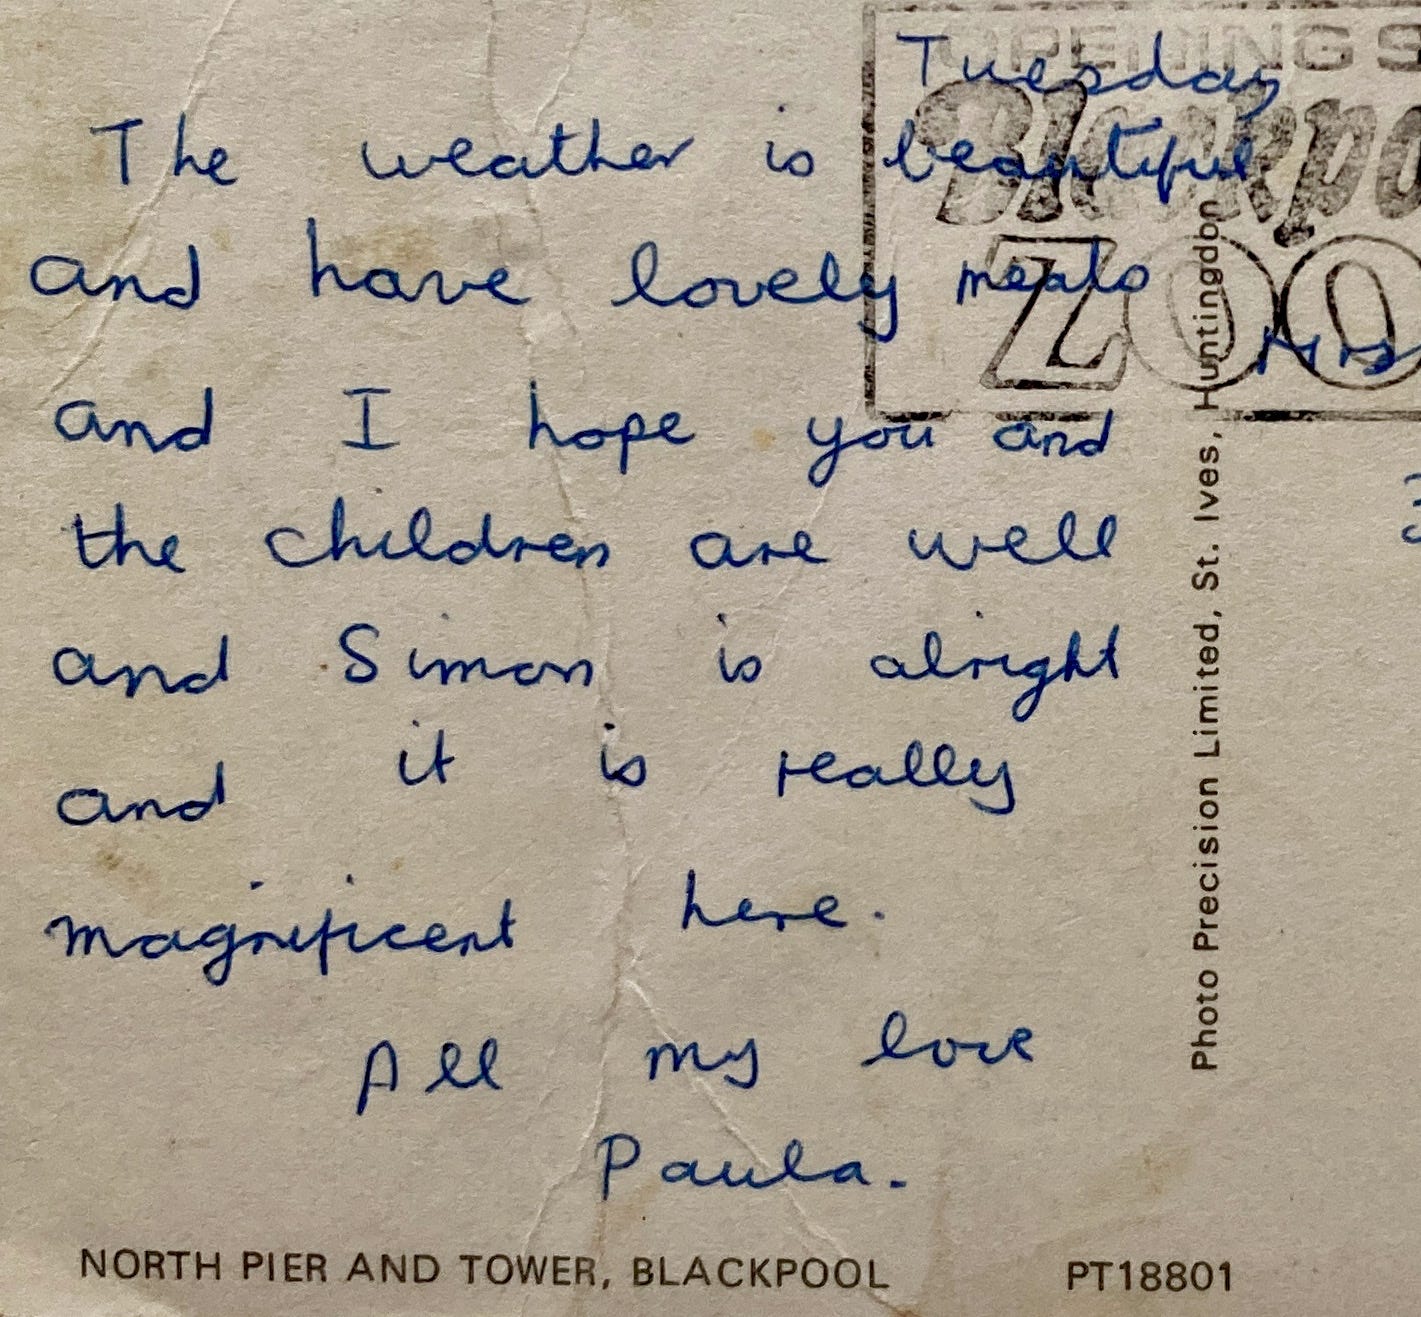 Tuesday
OPENING S
Blackpo
ZOO
The weather is beautiful
and have lovely meals
Mrs
and I hope you and
the children are well
and Simon is alright
and it is really
magnificent here.
All my love
Paula.
Photo Precision Limited, St. Ives, Huntingdon
NORTH PIER AND TOWER, BLACKPOOL PT18801